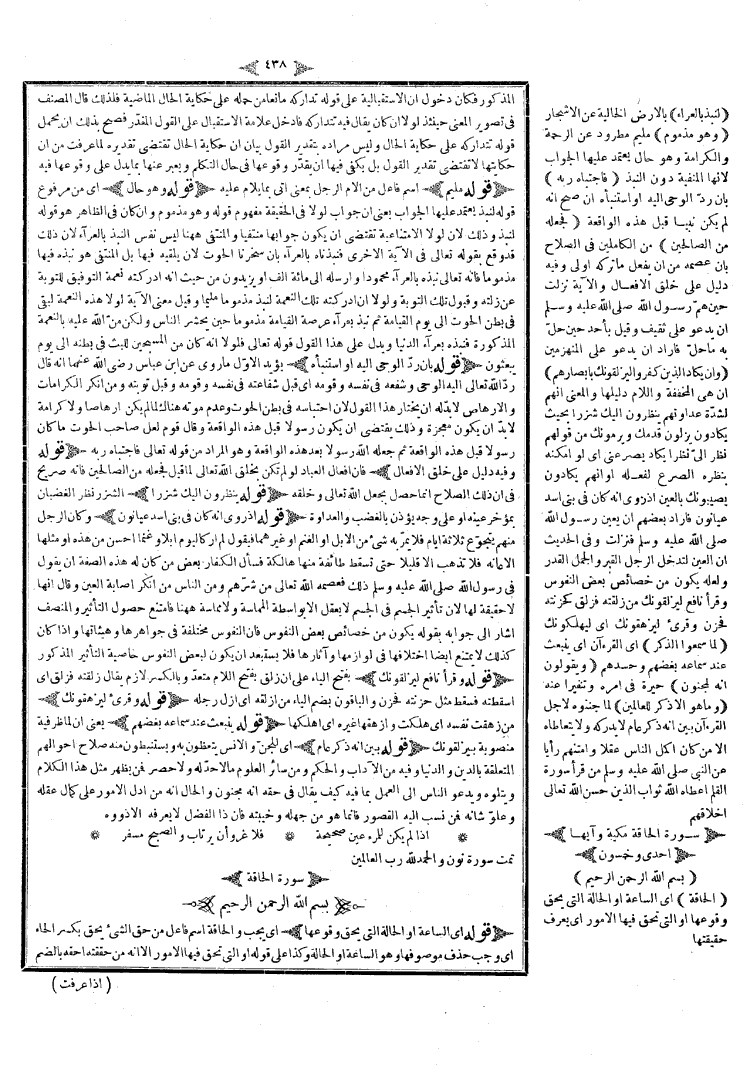 ٤٣٨
المذكور فكان دخول ان الاستقبالية على قوله تداركه مانعا من حمله على حكاية الحال الماضية فلذلك قال المصنف
فى تصوير المعنى حينئذ لولا ان كان يقال فيه تتداركه فادخل علامة الاستقبال على القول المقدر فصح بذلك ان يحمل
قوله تتداركه على حكاية الحال وليس مراده بتقدير القول بيان ان حكاية الحال تقتضى تقديره لما عرفت من ان
حكايتها لا تقتضى تقدير القول بل يكفى فيها ان يقدر وقوعها فى حال التكلم ويعبر عنها بما يدل على وقوعها فيه
﴿ قوله مليم ﴾ اسم فاعل من الام الرجل بمعنى اتى بما يلام عليه ﴿ قوله وهو حال ﴾ اى من مرفوع
قوله لنبذ يعتمد عليها الجواب بمعنى ان جواب لولا فى الحقيقة مفهوم قوله وهو مذموم وان كان فى الظاهر هو قوله
لنبذ وذلك لان لولا الامتناعية تقتضى ان يكون جوابها منتفيا والمنتفى ههنا ليس نفس النبذ بالعرآء لان ذلك
قد وقع بقوله تعالى فى الآية الاخرى فنبذناه بالعرآء بان سخرنا الحوت لان يلقيه فيها بل المنتفى هو نبذه فيها
مذموما فانه تعالى نبذه بالعرآء محمودا وارسله الى مائة الف او يزيدون من حيث انه ادركته نعمة التوفيق للتوبة
عن زلته وقبول تلك التوبة ولولا ان ادركته تلك النعمة لنبذ مذموما مليما وقيل معنى الآية لولا هذه النعمة لبقى
فى بطن الحوت الى يوم القيامة ثم نبذ بعرآء عرصة القيامة مذموما حين يحشر الناس ولكن من الله عليه بالنعمة
المذكورة فنبذه بعرآء الدنيا ويدل على هذا القول قوله تعالى فلولا انه كان من المسبحين للبث فى بطنه الى يوم
يبعثون ﴿ قوله بان رد الوحى اليه او استنبأه ﴾ يؤيد الاول ماروى عن ابن عباس رضى الله عنهما انه قال
رد الله تعالى اليه الوحى وشفعه فى نفسه وقومه اى قبل شفاعته فى نفسه وقومه وقبل توبته ومن انكر الكرامات
والارهاص لابد له ان يختار هذا القول لان احتباسه فى بطن الحوت وعدم موته هناك لما لم يكن ارهاصا ولا كرامة
لابد ان يكون معجزة وذلك يقتضى ان يكون رسولا قبل هذه الواقعة وقال قوم لعل صاحب الحوت ما كان
رسولا قبل هذه الواقعة ثم جعله الله رسولا بعد هذه الواقعة وهو المراد من قوله تعالى فاجتباه ربه ﴿ قوله
وفيه دليل على خلق الافعال ﴾ فان افعال العباد لو لم تكن بخلق الله تعالى لما قيل فجعله من الصالحين فانه صريح
فى ان ذلك الصلاح انما حصل بجعل الله تعالى وخلقه ﴿ قوله ينظرون اليك شزرا ﴾ الشزر نظر الغضبان
بمؤخر عينه او على وجه يؤذن بالغضب والعداوة ﴿ قوله اذروى انه كان فى بنى اسد عيانون ﴾ وكان الرجل
منهم يتجوع ثلاثة ايام فلا يمر به شئ من الابل او الغنم او غيرهما فيقول لم ار كاليوم ابلا وغنما احسن من هذه او مثلها
الا عانه فلا تذهب الا قليلا حتى تسقط طائفة منها هالكة فسأل الكفار بعض من كان له هذه الصفة ان يقول
فى رسول الله صلى الله عليه وسلم ذلك فعصمه الله تعالى من شرهم ومن الناس من انكر اصابة العين وقال انها
لا حقيقة لها لان تأثير الجسم فى الجسم لا يعقل الا بواسطة المماسة ولا مماسة ههنا فامتنع حصول التأثير والمنصف
اشار الى جوابه بقوله يكون من خصائص بعض النفوس فان النفوس مختلفة فى جواهرها وهيئاتها واذا كان
كذلك لا يمتنع ايضا اختلافها فى لوازمها وآثارها فلا يستبعد ان يكون لبعض النفوس خاصية التأثير المذكور
﴿ قوله وقرأ نافع ليزلقونك ﴾ بفتح الياء على ان زلق بفتح اللام متعد وبالكسر لازم يقال زلقته فزلق اى
اسقطته فسقط مثل حزنته فحزن والباقون بضم الياء من ازلقه اى ازل رجله ﴿ قوله وقرئ ليزهقونك ﴾
من زهقت نفسه اى هلكت وازهقها غيره اى اهلكها ﴿ قوله ينبعث عند سماعه بغضهم ﴾ يعنى ان لما ظرفية
منصوبة بيزلقونك ﴿ قوله بين انه ذكر عام ﴾ اى للجن والانس يتعظون به ويستنبطون منه صلاح احوالهم
المتعلقة بالدين والدنيا وفيه من الآداب والحكم ومن سائر العلوم مالا حد له ولا حصر فمن يظهر مثل هذا الكلام
ويتلوه ويدعو الناس الى العمل بما فيه كيف يقال فى حقه انه مجنون والحال انه من ادل الامور على كمال عقله
وعلو شانه فمن نسب اليه القصور فانما هو من جهله وخبيثته فان ذا الفضل لا يعرفه الا ذووه
* اذا لم يكن للمرء عين صحيحة * فلا غرو أن يرتاب والصبح مسفر *
تمت سورة نون والحمد لله رب العالمين
﴿ سورة الحاقة ﴾
﴿ بسم الله الرحمن الرحيم ﴾
﴿ قوله اى الساعة او الحالة التى يحق وقوعها ﴾ اى يجب والحاقة اسم فاعل من حق الشئ يحق بكسر الحاء
اى وجب حذف موصوفها وهو الساعة او الحالة وكذا على قوله او التى تحق فيها الامور الا انه من حققته احقه بالضم
( اذا عرفت )
( لنبذ بالعراء ) بالارض الخالية عن الاشجار
( وهو مذموم ) مليم مطرود عن الرحمة
والكرامة وهو حال يعتمد عليها الجواب
لانها المنفية دون النبذ ( فاجتباه ربه )
بان رد الوحى اليه او استنبأه ان صح انه
لم يكن نبيا قبل هذه الواقعة ( فجعله
من الصالحين ) من الكاملين فى الصلاح
بان عصمه من ان يفعل ما تركه اولى وفيه
دليل على خلق الافعال والآية نزلت
حين هم رسول الله صلى الله عليه وسلم
ان يدعو على ثقيف وقيل بأحد حين حل
به ما حل فاراد ان يدعو على المنهزمين
(وان يكاد الذين كفروا ليزلقونك بابصارهم)
ان هى المخففة واللام دليلها والمعنى انهم
لشدة عداوتهم ينظرون اليك شزرا بحيث
يكادون يزلون قدمك ويرمونك من قولهم
نظر الى نظرا يكاد يصرعنى اى لو امكنه
بنظره الصرع لفعله اوانهم يكادون
يصيبونك بالعين اذروى انه كان فى بنى اسد
عيانون فاراد بعضهم ان يعين رسول الله
صلى الله عليه وسلم فنزلت وفى الحديث
ان العين لتدخل الرجل القبر والجمل القدر
ولعله يكون من خصائص بعض النفوس
وقرأ نافع ليزلقونك من زلقته فزلق كحزنته
فحزن وقرئ ليزهقونك اى ليهلكونك
( لما سمعوا الذكر ) اى القرءآن اى ينبعث
عند سماعه بغضهم وحسدهم ( ويقولون
انه لمجنون ) حيرة فى امره وتنفيرا عنه
( وما هو الا ذكر للعالمين ) لما جننوه لاجل
القرءآن بين انه ذكر عام لا يدركه ولا يتعاطاه
الا من كان اكمل الناس عقلا وامتنهم رأيا
عن النبى صلى الله عليه وسلم من قرأ سورة
القلم اعطاه الله ثواب الذين حسن الله تعالى
اخلاقهم
﴿ سورة الحاقة مكية وآيها ﴾
﴿ احدى وخمسون ﴾
( بسم الله الرحمن الرحيم )
( الحاقة ) اى الساعة او الحالة التى يحق
وقوعها او التى تحق فيها الامور اى يعرف
حقيقتها